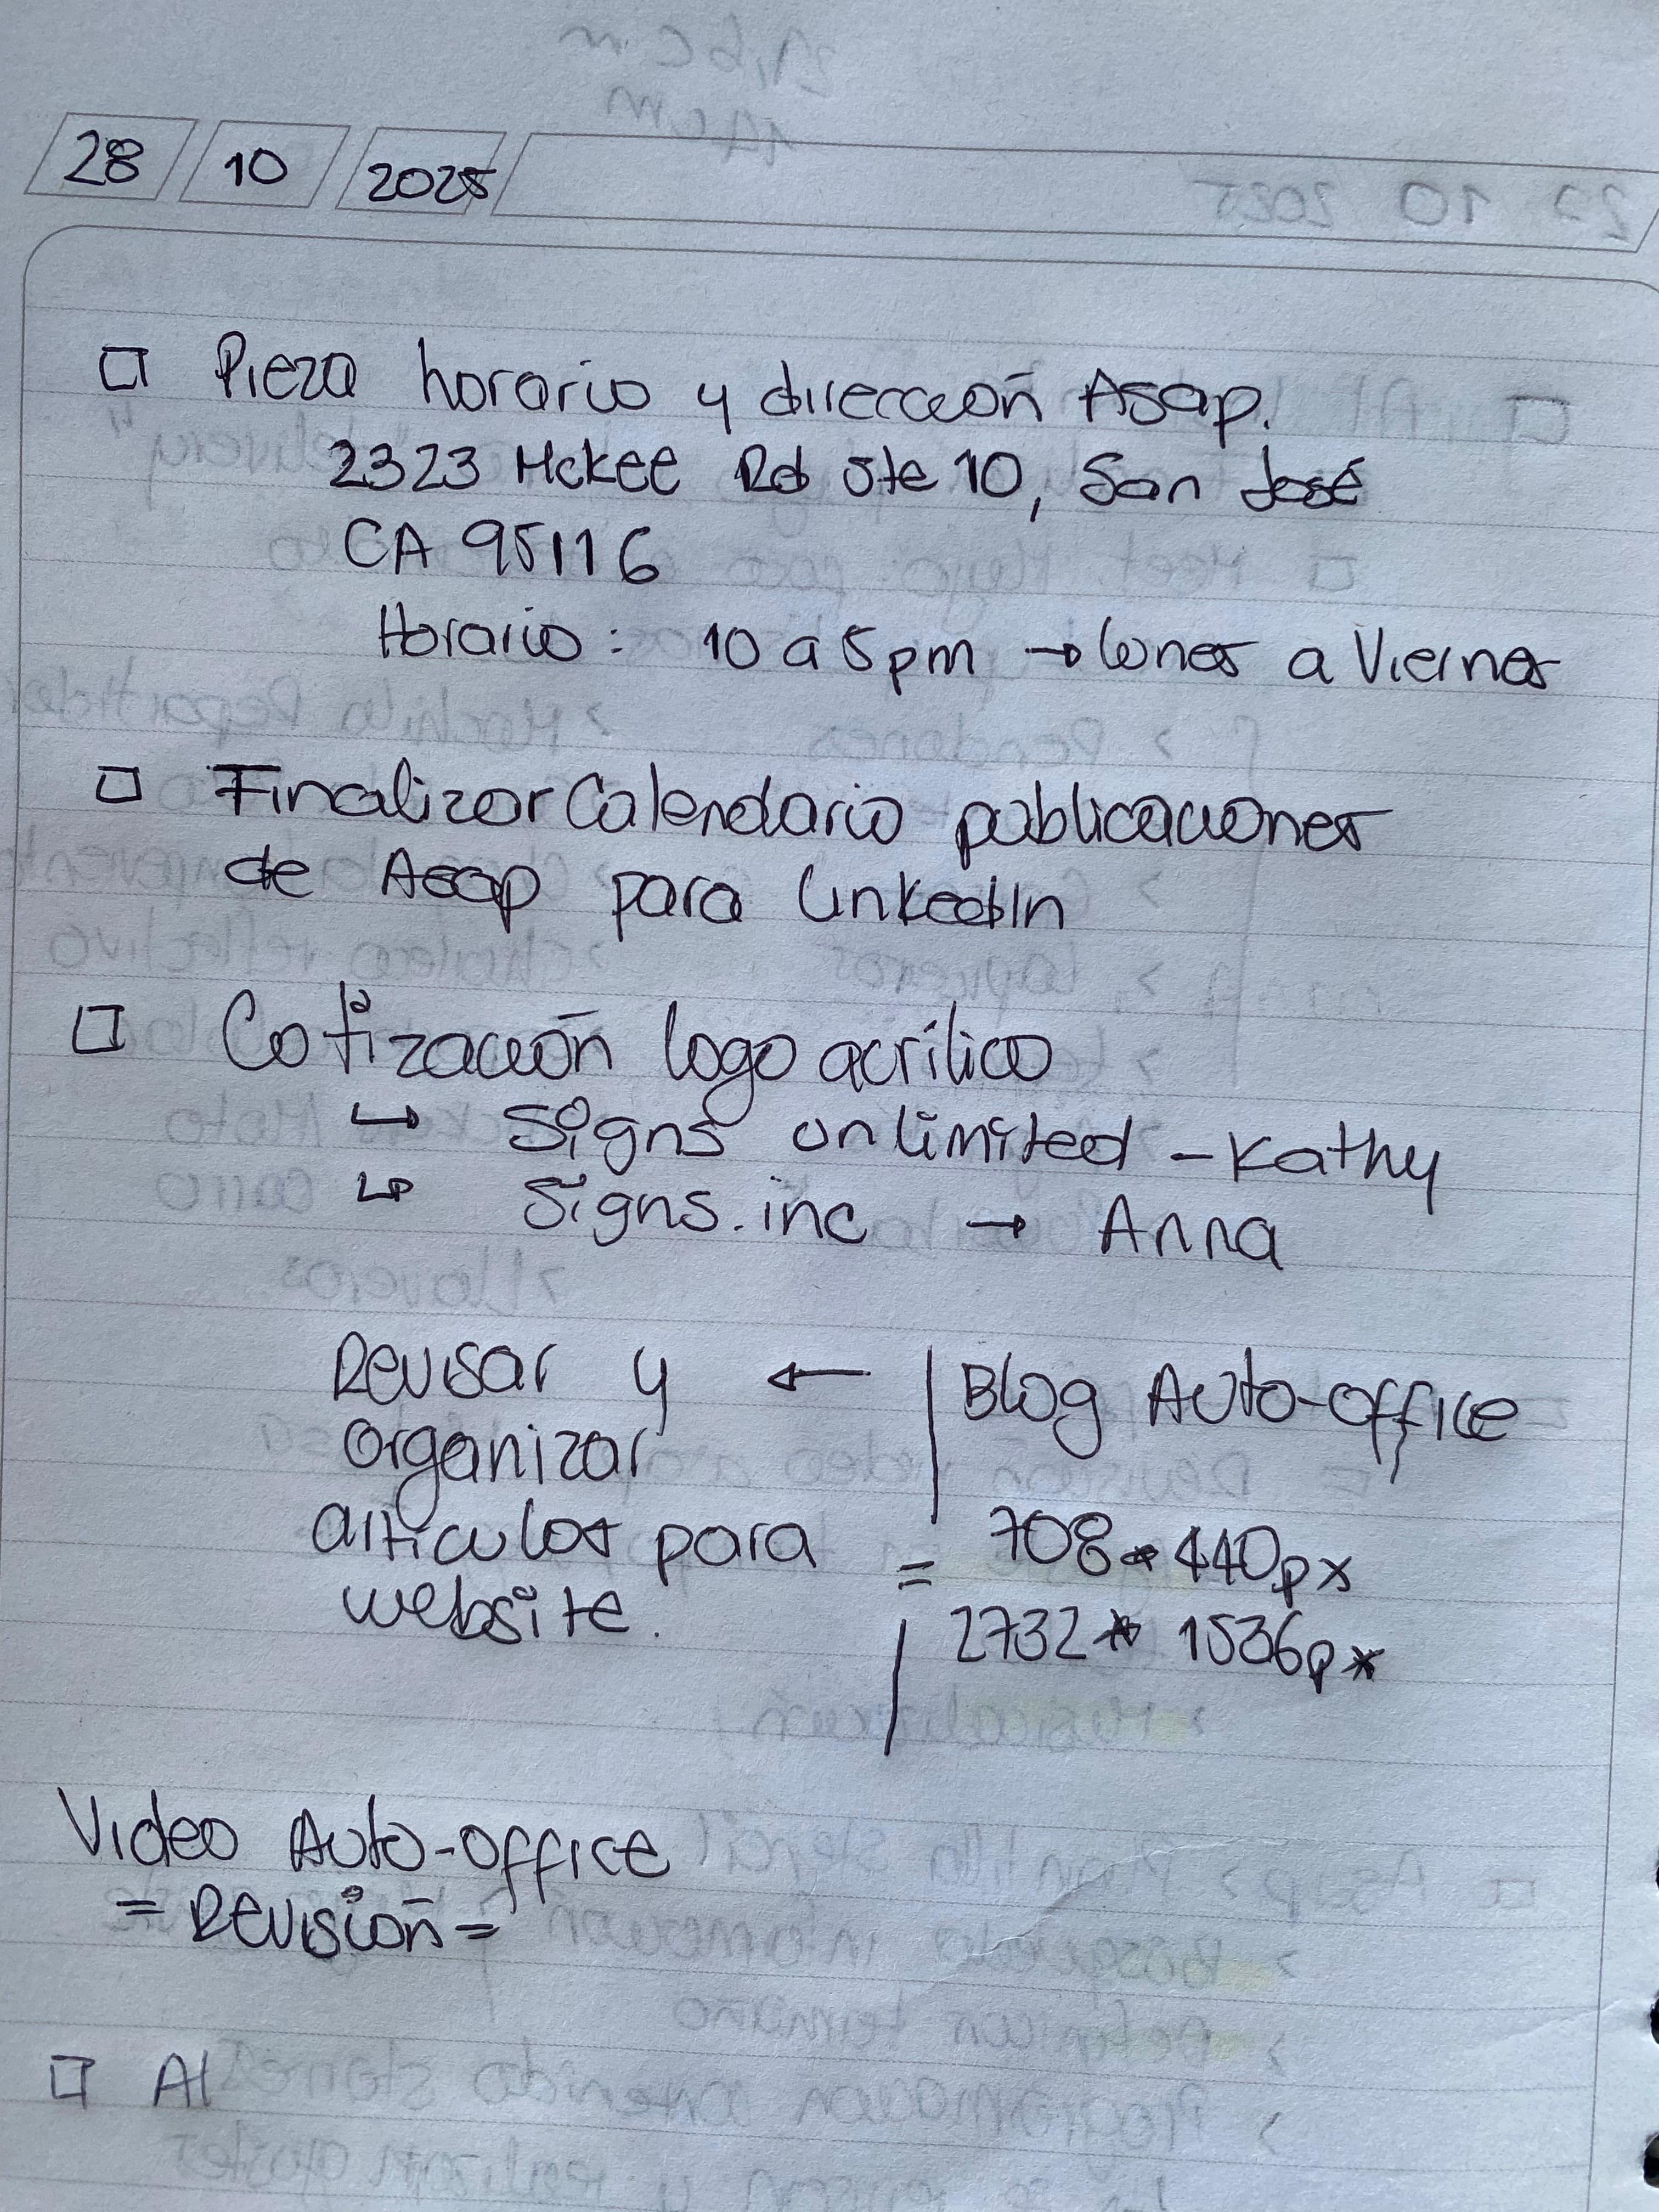 28 10 2025
□ Pieza horario y dirección Asap.
2323 Mckee Rd Ste 10, San José
CA 95116
Horario: 10 a 5pm → lunes a Viernes
□ Finalizar Calendario publicaciones
de Asap para LinkedIn
□ Cotización logo acrílico
↳ Signs unlimited - Kathy
↳ Signs.inc → Anna
Revisar y ← | Blog Auto-office
organizar
artículos para = 708 * 440px
website. | 2732 * 1536px
Video Auto-office
= Revisión =
□ Al